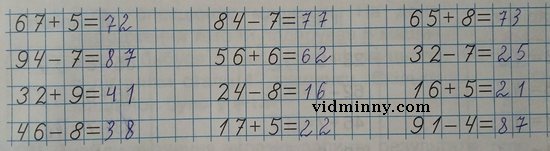 67+5=72 84-7=77 65+8=73
94-7=87 56+6=62 32-7=25
32+9=41 24-8=16 16+5=21
vidminny.com
46-8=38 17+5=22 91-4=87